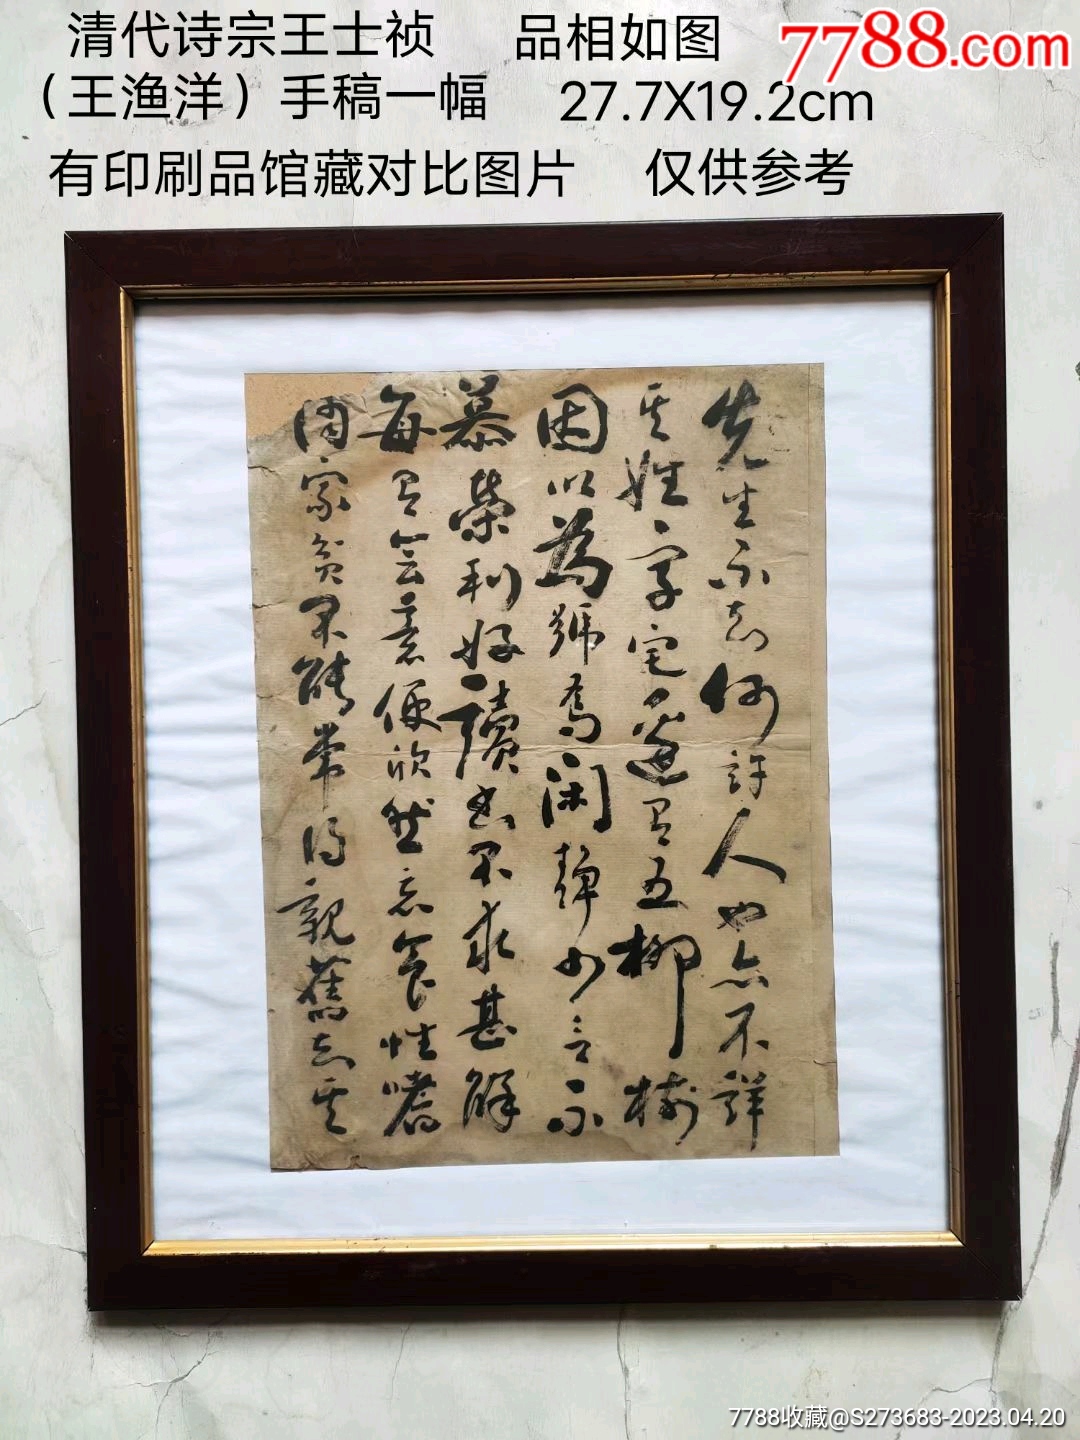 清代诗宗王士祯 品相如图
7788.com
（王渔洋）手稿一幅 27.7X19.2cm
有印刷品馆藏对比图片 仅供参考
先生不知何許人也亦不詳
其姓字宅邊有五柳樹
因以為號焉閑靜少言不
慕榮利好讀書不求甚解
每有會意便欣然忘食性嗜
酒家貧不能常得親舊知其
7788收藏@S273683-2023.04.20